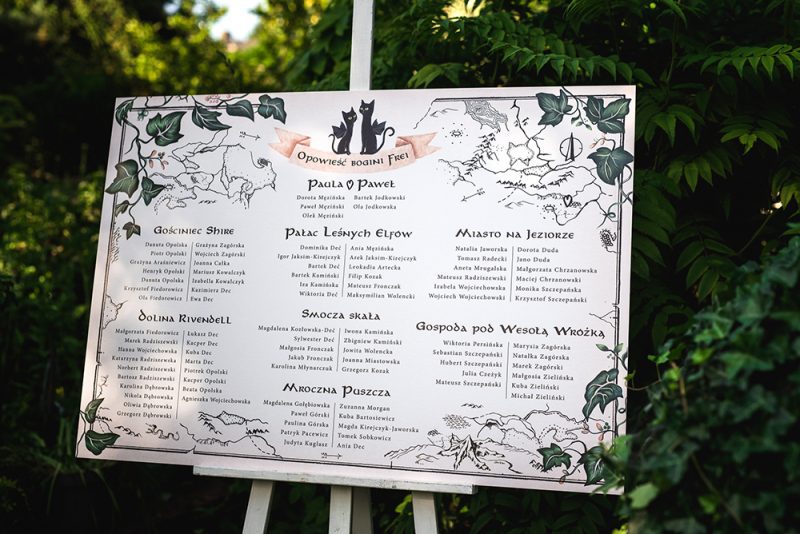 Opowieść bogini Frei
Paula Paweł
Dorota Męzińska Bartek Jodkowski
Paweł Męziński Ola Jodkowska
Olek Męziński
Gościniec Shire
Danuta Opolska Grażyna Zagórska
Piotr Opolski Wojciech Zagórski
Grażyna Araśniewicz Joanna Calka
Henryk Opolski Mariusz Kowalczyk
Danuta Opolska Izabella Kowalczyk
Krzysztof Fiedorowicz Kazimierz Dec
Ola Fiedorowicz Ewa Dec
Pałac Leśnych Elfów
Dominika Deć Ania Męzińska
Igor Jaksim-Kirejczyk Arek Jaksim-Kirejczyk
Bartek Deć Leokadia Artecka
Bartek Kamiński Filip Kozak
Iza Kamińska Mateusz Fronczak
Wiktoria Deć Maksymilian Wolencki
Miasto na Jeziorze
Natalia Jaworska Dorota Duda
Tomasz Radecki Jano Duda
Aneta Mrugalska Małgorzata Chrzanowska
Mateusz Radziszewski Maciej Chrzanowski
Izabela Wojciechowska Monika Szczepańska
Wojciech Wojciechowski Krzysztof Szczepański
Dolina Rivendell
Małgorzata Fiedorowicz Łukasz Dec
Marek Radziszewski Kacper Dec
Hanna Wojciechowska Kuba Dec
Katarzyna Radziszewska Marta Dec
Norbert Radziszewski Piotrek Opolski
Bartosz Radziszewski Kacper Opolski
Karolina Dąbrowska Beata Opolska
Nikola Dąbrowska Agnieszka Wojciechowska
Oliwia Dąbrowska
Grzegorz Dąbrowski
Smocza skała
Magdalena Kozłowska-Deć Iwona Kamińska
Sylwester Deć Zbigniew Kamiński
Małgosia Fronczak Jowita Wolencka
Jakub Fronczak Joanna Miastowska
Karolina Młynarczyk Grzegorz Kozak
Gospoda pod Wesołą Wróżką
Wiktoria Persińska Marysia Zagórska
Sebastian Szczepański Natalka Zagórska
Hubert Szczepański Marek Zagórski
Julia Czeżyk Małgosia Zielińska
Mateusz Szczepański Kuba Zieliński
Michał Zieliński
Mroczna Puszcza
Magdalena Gołębiowska Zuzanna Morgan
Paweł Górski Kuba Bartosiewicz
Paulina Górska Magda Kirejczyk-Jaworska
Patryk Pacewicz Tomek Sobkowicz
Judyta Kuglasz Ania Deć